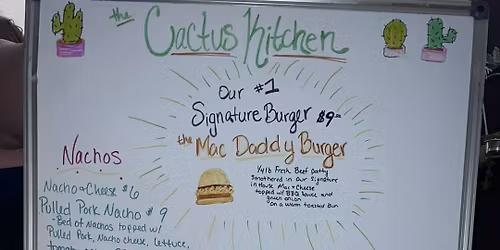 the Cactus Kitchen
Our #1
Signature Burger $9
the Mac Daddy Burger
1/4 lb Fresh Beef patty
Smothered in Our Signature
in House Mac & Cheese
topped w/ BBQ sauce and
green onion
on a warm toasted Bun
Nachos
Nacho & Cheese $6
Pulled Pork Nacho $9
- Bed of Nachos topped w/
Pulled Pork, Nacho cheese, lettuce,